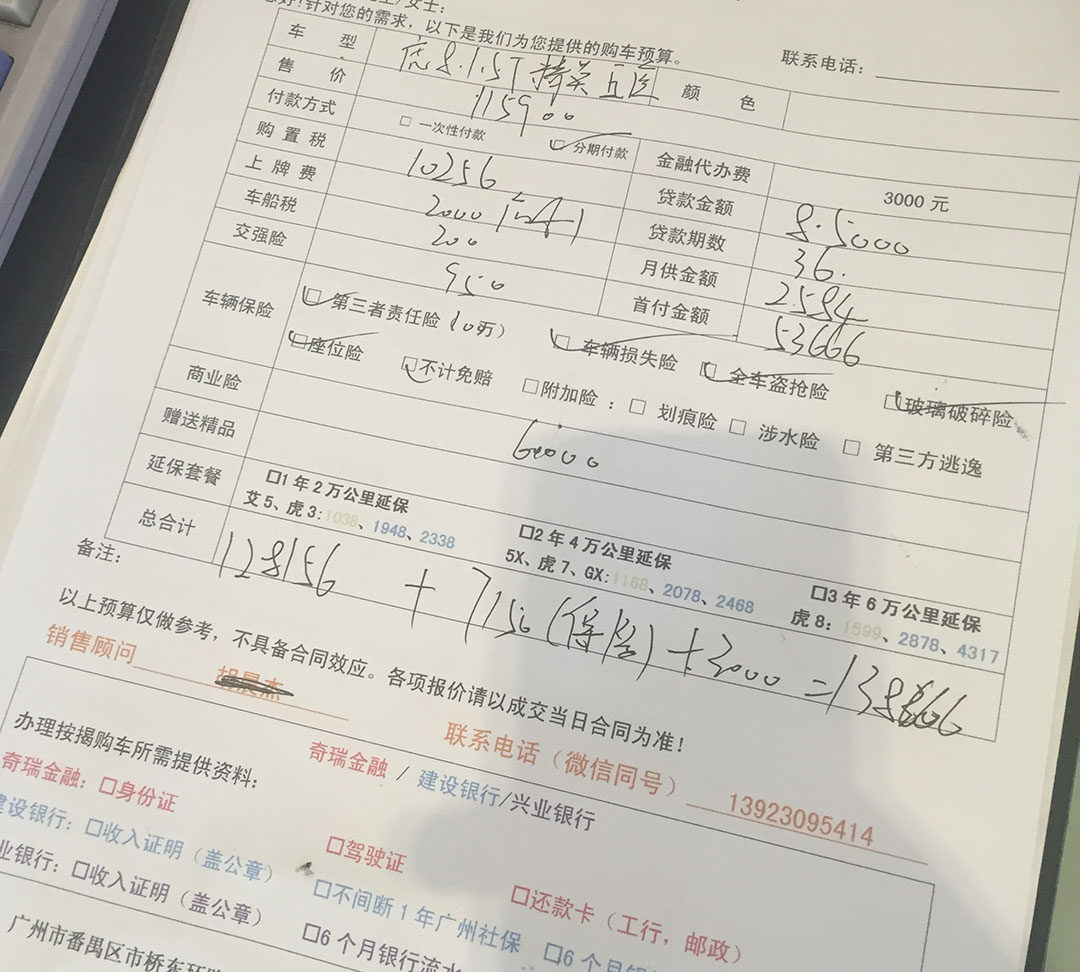 您好!针对您的需求,以下是我们为您提供的购车预算。
联系电话:
车 型 虎8.1.5T 精英 五座 颜 色
售 价 115900
付款方式 □ 一次性付款 □ 分期付款 金融代办费 3000 元
购 置 税 10256 贷款金额 8.5000
上 牌 费 2000 贷款期数 36.
车船税 200 月供金额 2584
交强险 950 首付金额 53666
车辆保险 □ 第三者责任险(10万) □ 车辆损失险 □ 全车盗抢险 □玻璃破碎险
□座位险 □不计免赔 □附加险: □ 划痕险 □ 涉水险 □ 第三方逃逸
商业险 6000
赠送精品
延保套餐 □1年2万公里延保 □2年4万公里延保 □3年6万公里延保
艾5、虎3:1038、1948、2338 5X、虎7、GX:1168、2078、2468 虎8:1599、2878、4317
总合计 128156 + 7150(保险)+3000=138866
备注:
以上预算仅做参考,不具备合同效应。各项报价请以成交当日合同为准!
销售顾问 联系电话(微信同号) 13923095414
办理按揭购车所需提供资料: 奇瑞金融 / 建设银行/兴业银行
奇瑞金融:□身份证 □驾驶证 □还款卡(工行,邮政)
建设银行:□收入证明(盖公章) □不间断1年广州社保 □6个月银
业银行:□收入证明(盖公章) □6个月银行流水
广州市番禺区市桥东环路